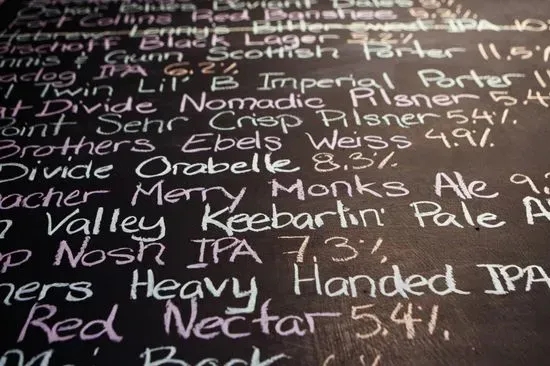 Deviant Dales 8%
Collins Red Banshee
Lenny's Bittersweet IPA
Bischoff Black Lager 5.2%
Gunn Scottish Porter 11.5%
IPA 6.2%
Twin Lil' B Imperial Porter
Divide Nomadic Pilsner 5.4
Point Sehr Crisp Pilsner 5.4%
Brothers Ebels Weiss 4.9%
Divide Orabelle 8.3%
Merry Monks Ale 9.
Valley Keebarlin' Pale
Nosh IPA 7.3%
Heavy Handed IPA
Red Nectar 5.4%